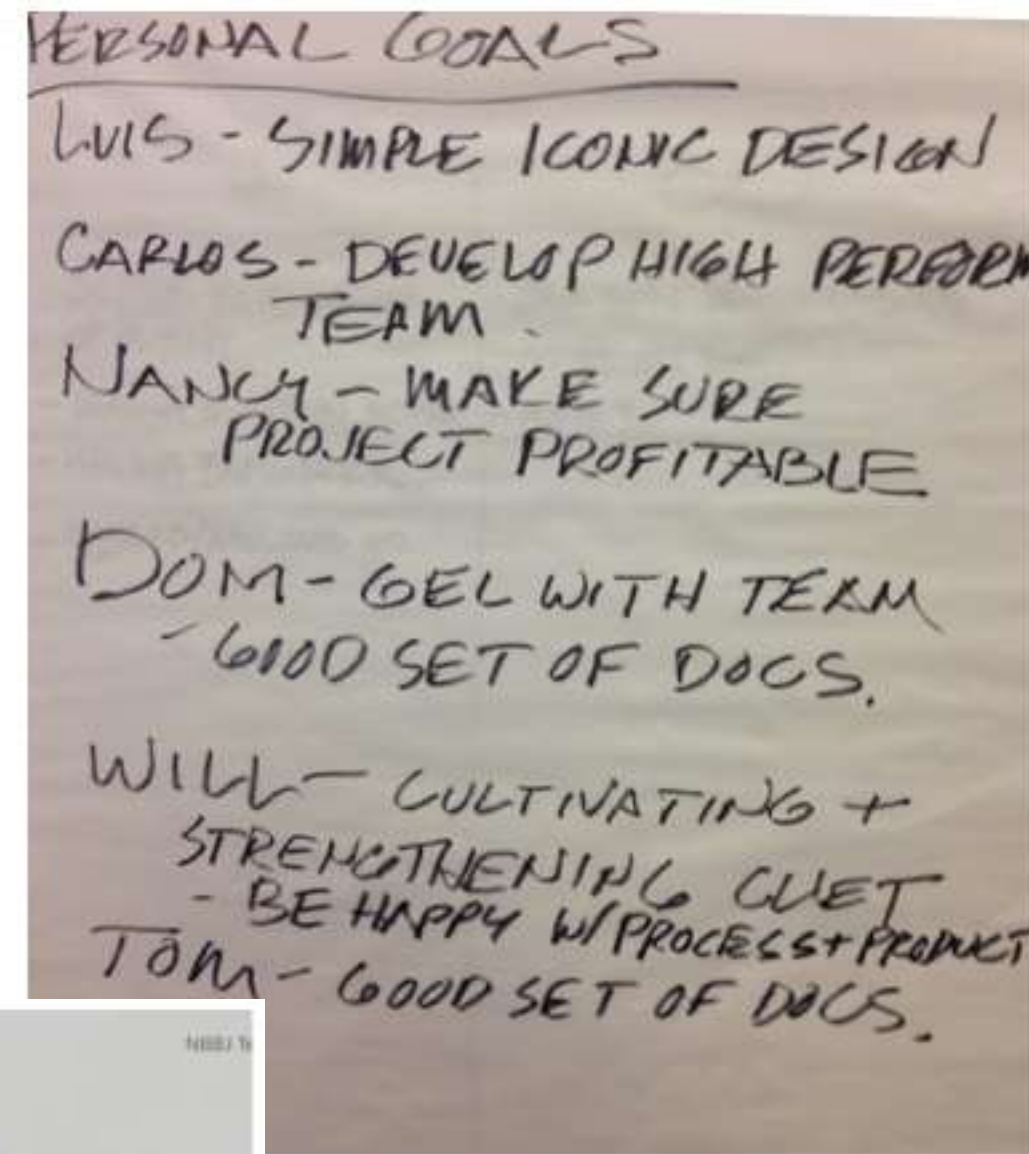 PERSONAL GOALS
LUIS - SIMPLE ICONIC DESIGN
CARLOS - DEVELOP HIGH PERFORM
TEAM.
NANCY - MAKE SURE
PROJECT PROFITABLE
DOM - GEL WITH TEAM
- GOOD SET OF DOCS.
WILL - CULTIVATING +
STRENGTHENING CLIET
- BE HAPPY W/ PROCESS + PRODUCT
TOM - GOOD SET OF DOCS.
NBBJ